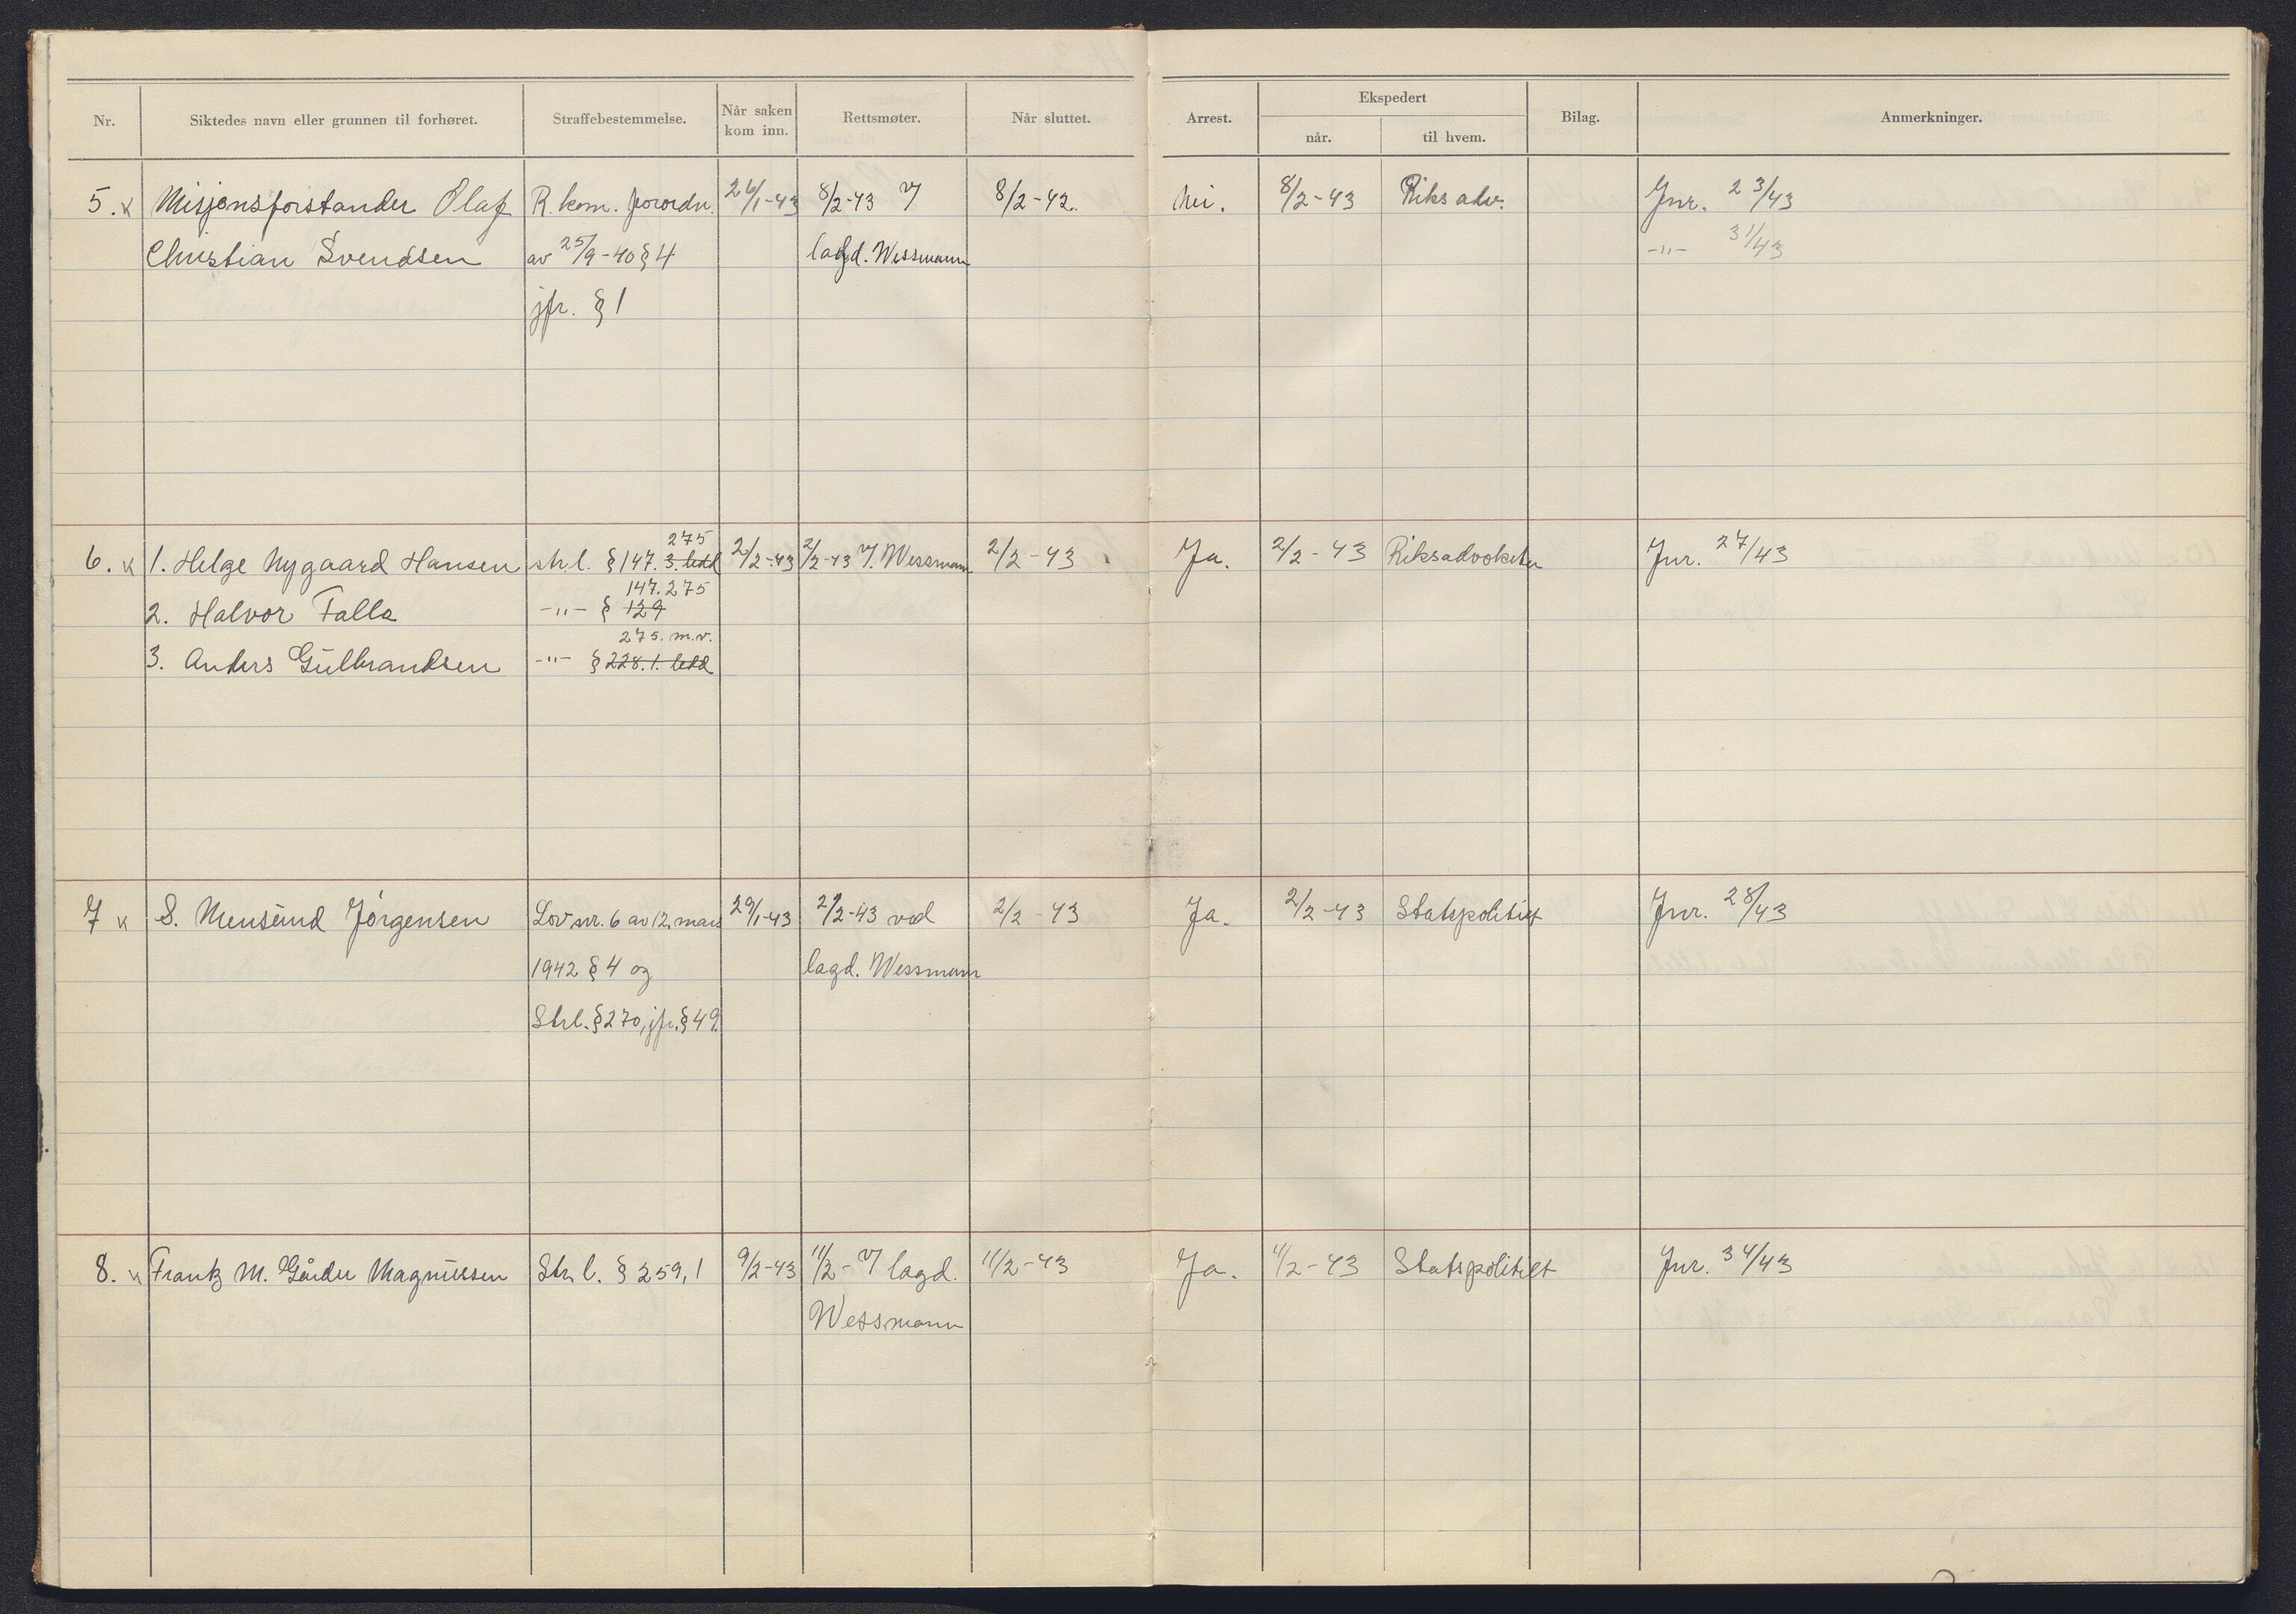 Nr. Siktedes navn eller grunnen til forhøret. Straffebestemmelse. Når saken kom inn. Rettsmøter. Når sluttet. Arrest. Ekspedert når. til hvem. Bilag. Anmerkninger.
5. x Misjonsforstander Olaf R. kom. forordn. 26/1-43 8/2-43 V 8/2-42. Nei. 8/2-43 Riksadv. Jnr. 23/43
Christian Svendsen av 25/9-40 § 4 lagd. Wessmann -"- 31/43
jfr. § 1
275
6. x 1. Helge Nygaard Hansen strl. § 147. 3. ledd 2/2-43 2/2-43 V. Wessmann 2/2-43 Ja. 2/2-43 Riksadvokaten Jnr. 27/43
147. 275
2. Halvor Falla -"- § 129
275. m.v.
3. Anders Gulbrandsen -"- § 228. 1. ledd
7 x S. Mensund Jörgensen Lov nr. 6 av 12. mars 29/1-43 2/2-43 ved 2/2-43 Ja. 2/2-43 Statspolitiet Jnr. 28/43
1942 § 4 og lagd. Wessmann
Strl. § 270, jfr. § 49.
8. x Frank M. Gåder Magnussen Strl. § 259, 1 9/2-43 11/2- V lagd. 11/2-43 Ja. 11/2-43 Statspolitiet Jnr. 34/43
Wessmann